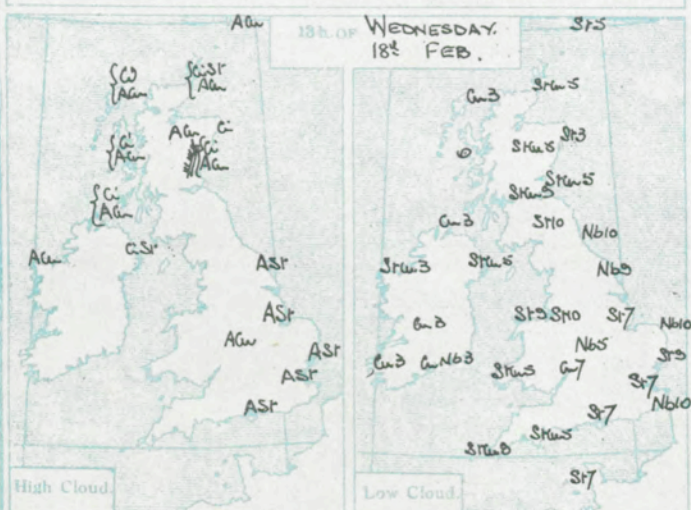 13h. OF WEDNESDAY.
18th FEB.
ACu
{Ci
ACu
{CiSt
ACu
{Ci
ACu
ACu
Ci
{Ci
ACu
{Ci
ACu
ACu
CiSt
ASt
ASt
ACu
ASt
ASt
ASt
High Cloud.
St5
Cu3
StCu5
St3
StCu8
StCu5
StCu5
Cu3
St10
Nb10
StCu3
StCu5
Nb9
Cu3
St9
St10
St7
Nb10
Nb5
St9
Cu3
CuNb3
StCu5
Cu7
St7
Nb10
St7
StCu5
StCu8
St7
Low Cloud.